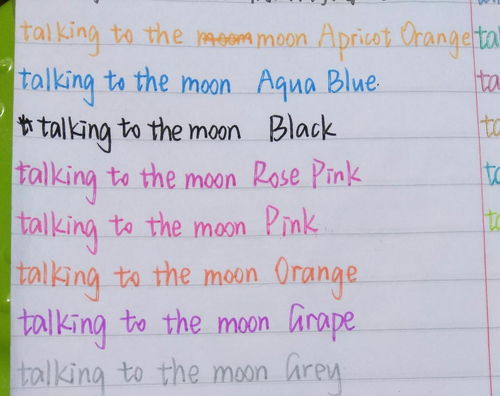 talking to the moon Apricot Orange ta
talking to the moon Aqua Blue. ta
talking to the moon Black ta
talking to the moon Rose Pink ta
talking to the moon Pink ta
talking to the moon Orange
talking to the moon Grape
talking to the moon Grey